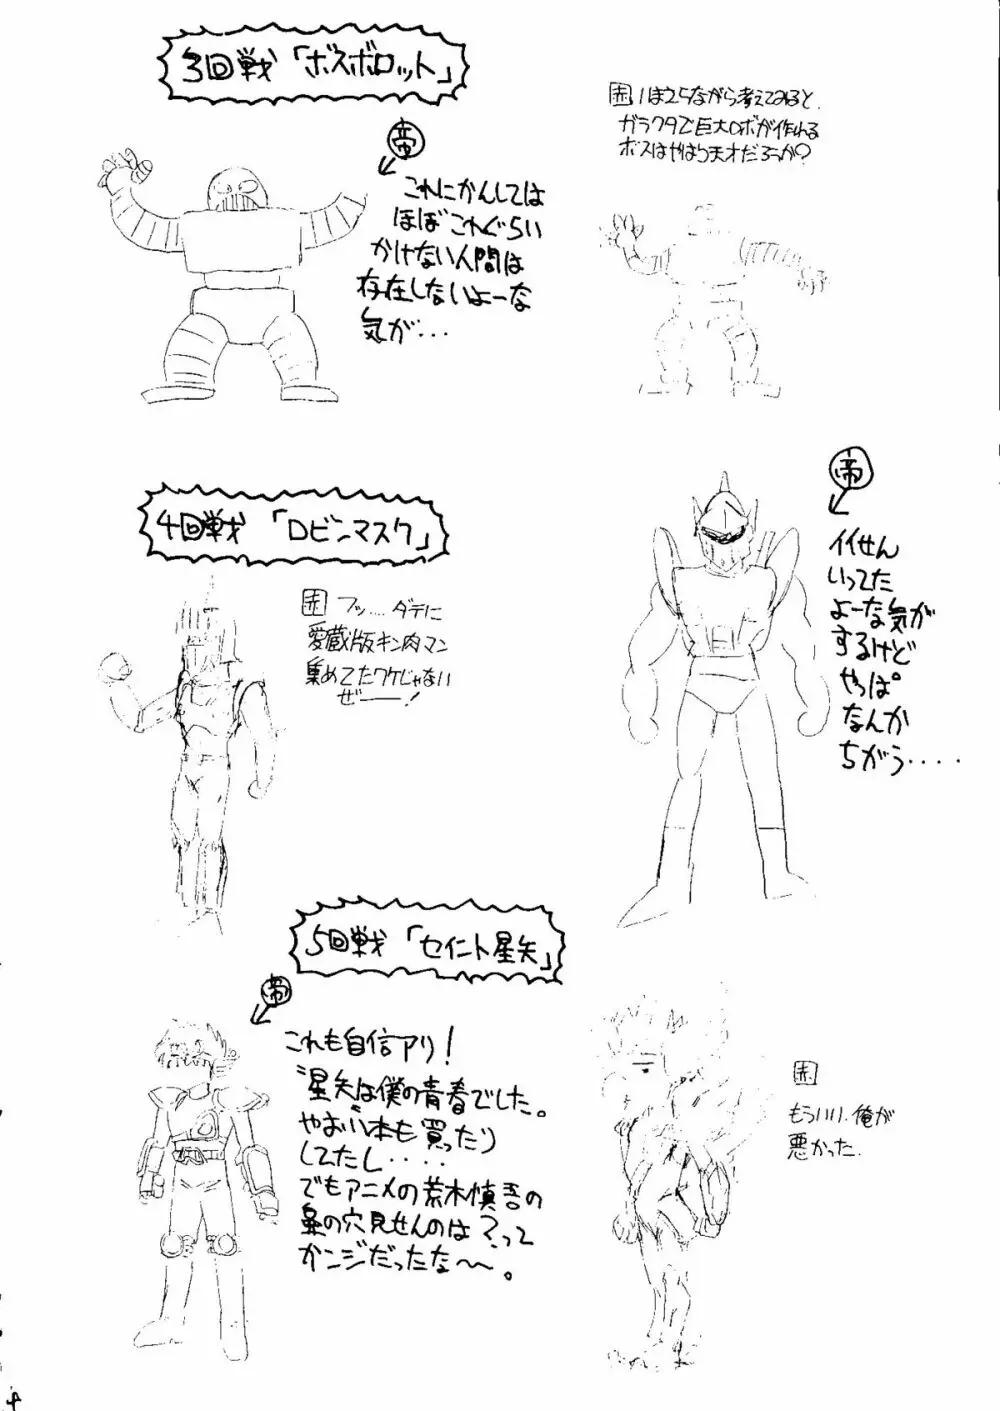 3回戦「ボスボロット」
帝
これにかんしては
ほぼこれぐらい
かけない人間は
存在しないよーな
気が・・・
赤 いまさらながら考えてみると、
ガラクタで巨大ロボが作れる
ボスはやはり天才だろうか?
4回戦「ロビンマスク」
赤 フッ‥‥ダテに
愛蔵版キン肉マン
集めてたワケじゃない
ぜ――!
帝
イイせん
いってた
よーな気が
するけど
やっぱ
なんか
ちがう・・・・
5回戦「セイント星矢」
帝
これも自信アリ!
〝星矢〟は僕の青春でした。
やおい本も買ったり
してたし・・・・
でもアニメの荒木慎吾の
鼻の穴見せんのは?って
カンジだったな〜。
赤
もういい、俺が
悪かった。